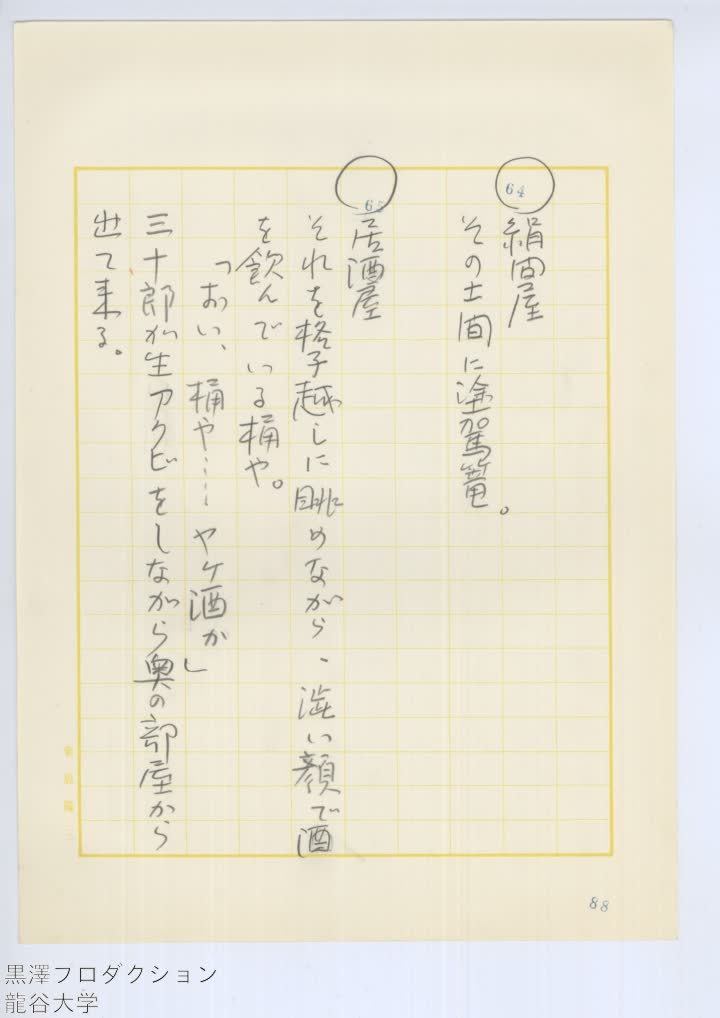 64
絹問屋
その土間に塗駕篭。
65
居酒屋
それを格子越しに眺めながら、渋い顔で酒
を飲んでいる桶や。
「おい、桶や……ヤケ酒か」
三十郎が生アクビをしながら奥の部屋から
出て来る。
88
黒澤プロダクション
龍谷大学